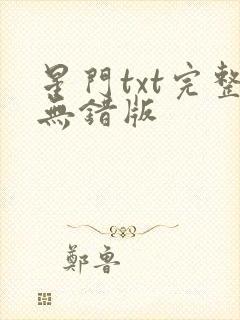 星門txt完整
無錯版
鄭魯